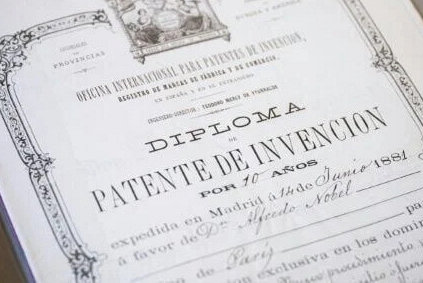 SUCURSALES
EN
PROVINCIAS
EUROPA Y AMÉRICA
OFICINA INTERNACIONAL PARA PATENTES DE INVENCION,
REGISTRO DE MARCAS DE FÁBRICA Y DE COMERCIO,
EN ESPAÑA Y EN EL EXTRANJERO
INGENIERO-DIRECTOR:
DIPLOMA
DE
PATENTE DE INVENCION
POR 10 AÑOS
expedida en Madrid á 14 de Junio 1881
á favor de Dn Alfredo Nobel
de París
ion exclusiva en los domi
procedimiento